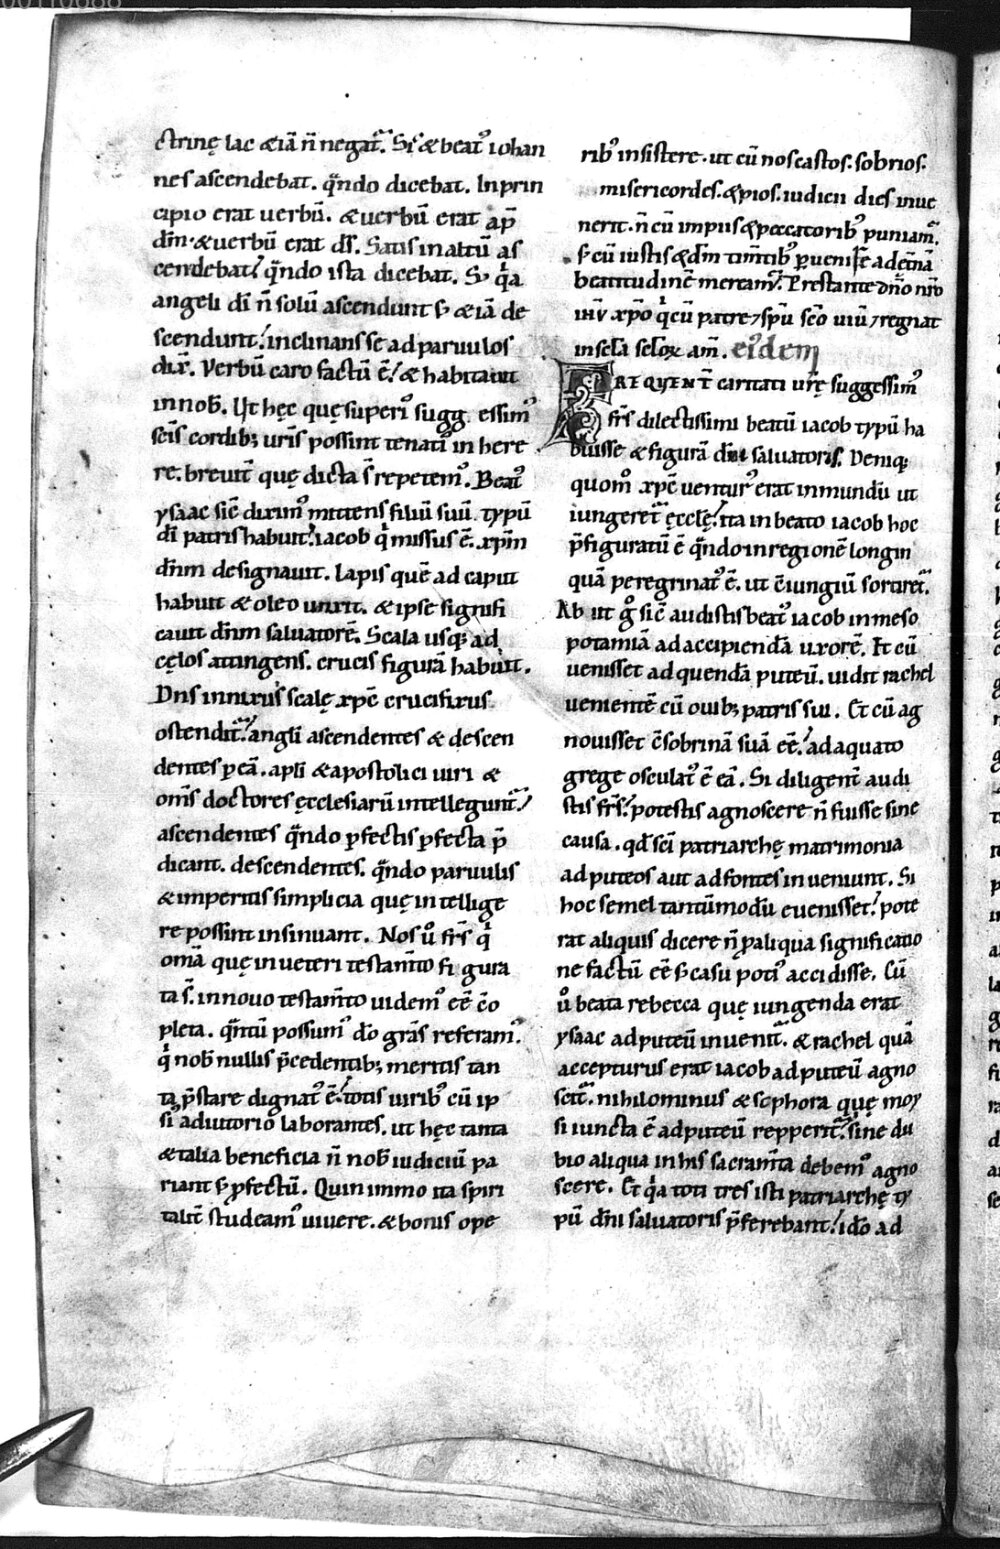 ctrinę lac &iā n̄ negat᷑. Sic̄ & beat᷒ iohan
nes ascendebat. q̄ndo dicebat. In prin
cipio erat uerbū. & uerbū erat ap̄
dm̄. & uerbū erat ds̄. Satis in altū as
cendebat! q̄ndo ista dicebat. S; q̄a
angeli dī n̄ solū ascendunt s; & iā de
scendunt! inclinans se ad paruulos
dix̄. Verbū caro factū ē! & habitauit
in nob̄. Ut hęc quę superi᷒ sugg essim᷒
sc̄is cordib; ur̄is possint tenati᷒ in here
re. breuit̄ quę dicta s̄ repetem᷒. Beat᷒
ysaac sic̄ dixim᷒ mittens filiū suū. typū
dī patris habuit! iacob q̄ missus ē. xp̄m
dn̄m designauit. Lapis quē ad caput
habuit & oleo unxit. & ipse signifi
cauit dn̄m saluatorē. Scala usq; ad
cęlos attingens. crucis figurā habuit.
Dn̄s innixus scalę xp̄c crucifixus
ostendit᷑! angli ascendentes & descen
dentes ꝑ eā. apl̄i & apostolici uiri &
om̄s doctores ęcclesiarū intellegunt᷑!
ascendentes q̄ndo ꝑfectis ꝑfecta p̄
dicant. descendentes. q̄ndo paruulis
& imperitis simplicia quę intellige
re possint insinuant. Nos ů fr̄s q̄
omā quę in ueteri testam̄to figura
ta s̄. in nouo testam̄to uidem᷒ eē c̄o
pleta. q̄ntū possum᷒ dō gr̄as referam᷒.
q̄ nob̄ nullis p̄cedentib; meritis tan
ta p̄stare dignat᷒ ē! totis uirib᷒ cū ip
si᷒ adiutorio laborantes. ut hęc tanta
& talia beneficia n̄ nob̄ iudiciū pa
riant s; ꝓfectū. Quin immo ita spiri
talit̄ studeam᷒ uiuere. & bonis ope
rib᷒ insistere. ut cū nos castos. sobrios.
misericordes. & pios. iudicii dies inue
nerit. n̄ cū impiis & peccatorib᷒ puniam᷑.
s; cū iustis & dm̄ tim̄tib᷒ ꝑuenis̄e ad et̄nā
beatitudinē meream᷑. Prestante dn̄o nr̄o
ih̄u xp̄o q̄ cū patre ⁊ sp̄u sc̄o uiū ⁊ regnat
in sc̄la sc̄loꝝ am̄. ei᷒dem
FREQUENT̄ caritati ur̄ę suggessim᷒
fr̄s dilectissimi beatū iacob typū ha
buisse & figurā dn̄i saluatoris. Deniq;
quom̄ xp̄c ventur᷒ erat in mundū ut
iungeret᷑ ęcclę! ita in beato iacob hoc
p̄figuratū ē q̄ndo in regionē longin
quā peregrinat᷒ ē. ut c̄iungiū sortiret᷑.
Ab iit g̊ sic̄ audistis beat᷒ iacob in meso
potamiā ad accipiendā uxorē. Et cū
uenisset ad quendā puteū. uidit rachel
uenientē cū ouib; patris sui. Et cū ag
nouisset c̄sobrinā suā eē! adaquato
grege osculat᷒ ē eā. Si diligent̄ audi
stis fr̄s! potestis agnoscere n̄ fuisse sine
causa. qd̄ sc̄i patriarchę matrimonia
ad puteos aut ad fontes inueniunt. Si
hoc semel tantūmodū euenisset! pote
rat aliquis dicere n̄ ꝑ aliqua significatio
ne factū eē s; casu poti᷒ accidisse. Cū
ů beata rebecca quę iungenda erat
ysaac ad puteū inuenit᷑. & rachel quā
accepturus erat iacob ad puteū agno
scit᷑. nihilominus & sephora quę moy
si iuncta ē ad puteū repperit᷑! sine du
bio aliqua in his sacram̄ta debem᷒ agno
scere. Et q̄a toti tres isti patriarchę ty
pū dn̄i saluatoris p̄ferebant! idō ad